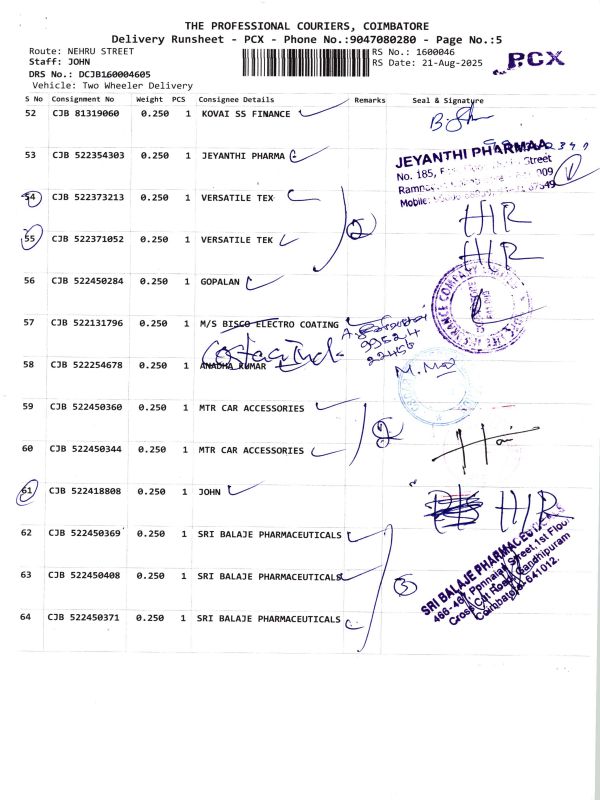 THE PROFESSIONAL COURIERS, COIMBATORE
Delivery Runsheet - PCX - Phone No.:9047080280 - Page No.:5
Route: NEHRU STREET
RS No.: 1600046
Staff: JOHN
RS Date: 21-Aug-2025
PCX
DRS No.: DCJB160004605
Vehicle: Two Wheeler Delivery
S No Consignment No Weight PCS Consignee Details Remarks Seal & Signature
52 CJB 81319060 0.250 1 KOVAI SS FINANCE
53 CJB 522354303 0.250 1 JEYANTHI PHARMA
JEYANTHI PHARMAA
No. 185, Street
009
Mobile:
54 CJB 522373213 0.250 1 VERSATILE TEX
2
HIR
55 CJB 522371052 0.250 1 VERSATILE TEK
HIR
56 CJB 522450284 0.250 1 GOPALAN
57 CJB 522131796 0.250 1 M/S BISCO ELECTRO COATING
99524
22456
58 CJB 522254678 0.250 1 ANADHA KUMAR
59 CJB 522450360 0.250 1 MTR CAR ACCESSORIES
2
60 CJB 522450344 0.250 1 MTR CAR ACCESSORIES
61 CJB 522418808 0.250 1 JOHN
HIR
62 CJB 522450369 0.250 1 SRI BALAJE PHARMACEUTICALS
63 CJB 522450408 0.250 1 SRI BALAJE PHARMACEUTICALS
3
64 CJB 522450371 0.250 1 SRI BALAJE PHARMACEUTICALS
SRI BALAJE PHARMACEUTICALS
466-467, Ponnaiah Street, 1st Floor
Cross Cut Road, Gandhipuram
Coimbatore-641012.